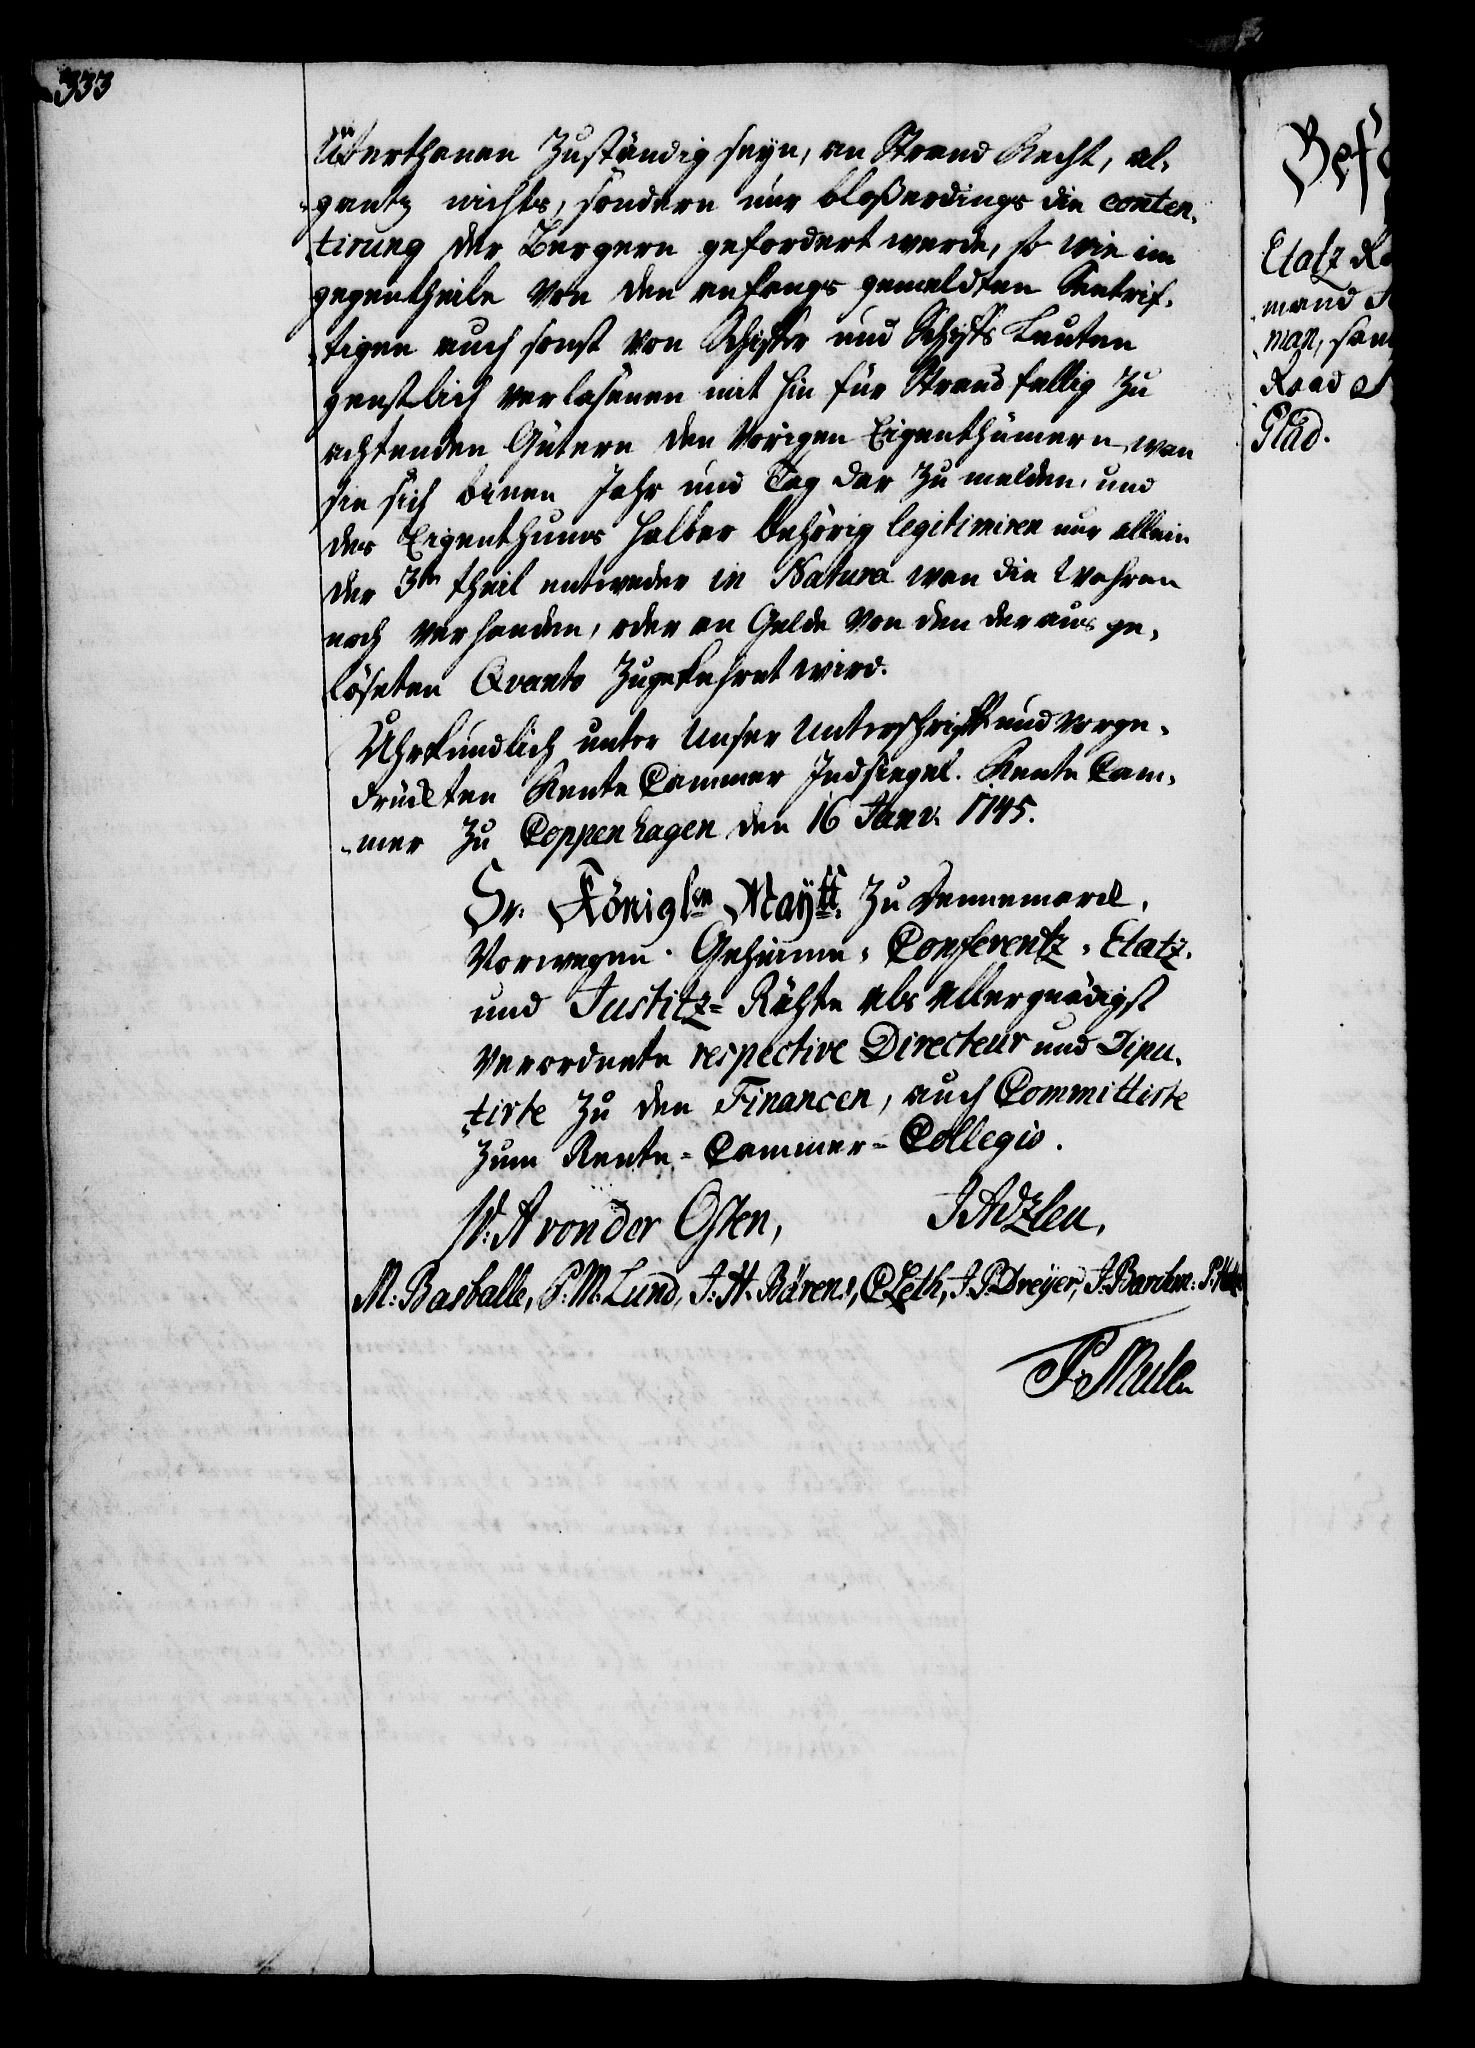 333
Uterthanen Zuständig seyn, an Strand Recht, al¬
gantz nichts, sondern nur bloßerdings die conten¬
tirung der Bergern gefordert werde, so wie im
gegentheile Von den anfangs gemeldten Seetrif¬
tigen auch sonst von Schiffer und Schiffs Leuten
gentzlich verlaßenen mit hin für Strandfellig Zu
achtenden Gütern den Vorigen Eigenthümern, wan
sie sich binen Jahr und Tag dar Zu melden, und
des Eigenthums halber behörig legitimiren nur allein
der 3te theil entweder in Natura wan die Wahren
noch verhanden, oder an Gelde Von den daraus ge¬
löseten Qvanto Zugekehret wird.
Uhrkundlich unter Unser Unterschrifft und vorge¬
drückten Rente Cammer Indsiegel. Rente Cam¬
mer Zu Coppenhagen den 16 Janv: 1745.
Sr. Königlen Maytt. Zu Dennemarck,
Norwegen. Geheime, Conferentz, Etatz.
und Justitz= Rähte als allergnädigst
Verordnete respective Directeur und Depu¬
tirte Zu den Financen, auch Committirte
Zum Rente=Cammer=Collegio.
W: A von der Osten,
M: Basballe, P. M. Lund, J: H. Bärens, C Leth, J. P. Dreyer,
P. Mule
Etatz
mand
man, sam
Raad
Glad.